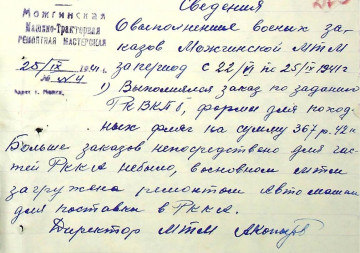 Сведения
Можгинская
Машино-Тракторная
РЕМОНТНАЯ МАСТЕРСКАЯ
25/IX 1941 г.
№ 4
Адрес г. Можга,
О выполнение воених за-
казов Можгинской МТМ
за период с 22/VI по 25/IX 1941 г
1) Выполнялся заказ по заданию
ГК ВКПб, формы для поход-
ных фляг на сумму 367 р. 42 к
Больше заказов непосредствено для час
тей РККА небыло, восновном мтм
загружена ремонтом Автомашин
для поставки в РККА.
Директор МТМ